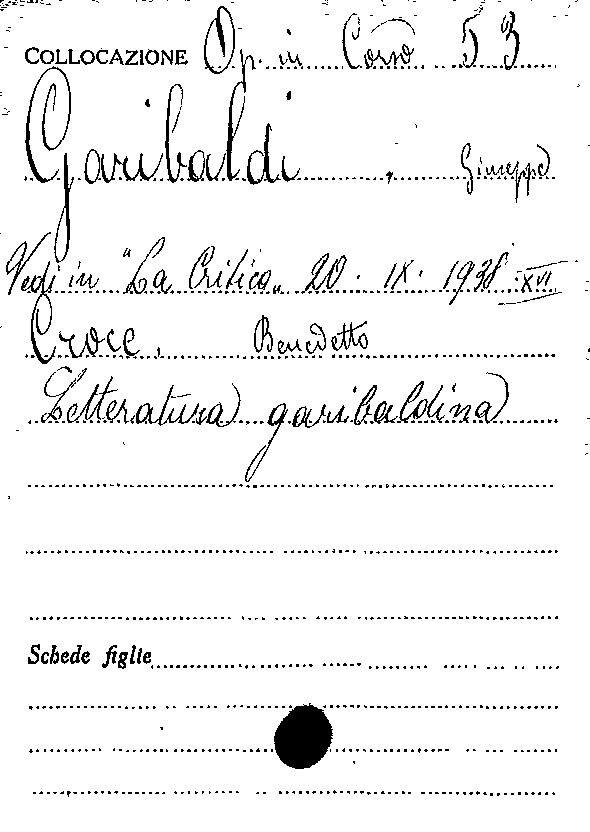 COLLOCAZIONE Op. in Corso 53
Garibaldi, Giuseppe
Vedi in "La Critica" 20. IX. 1938 XVI
Croce, Benedetto
Letteratura garibaldina
Schede figlie